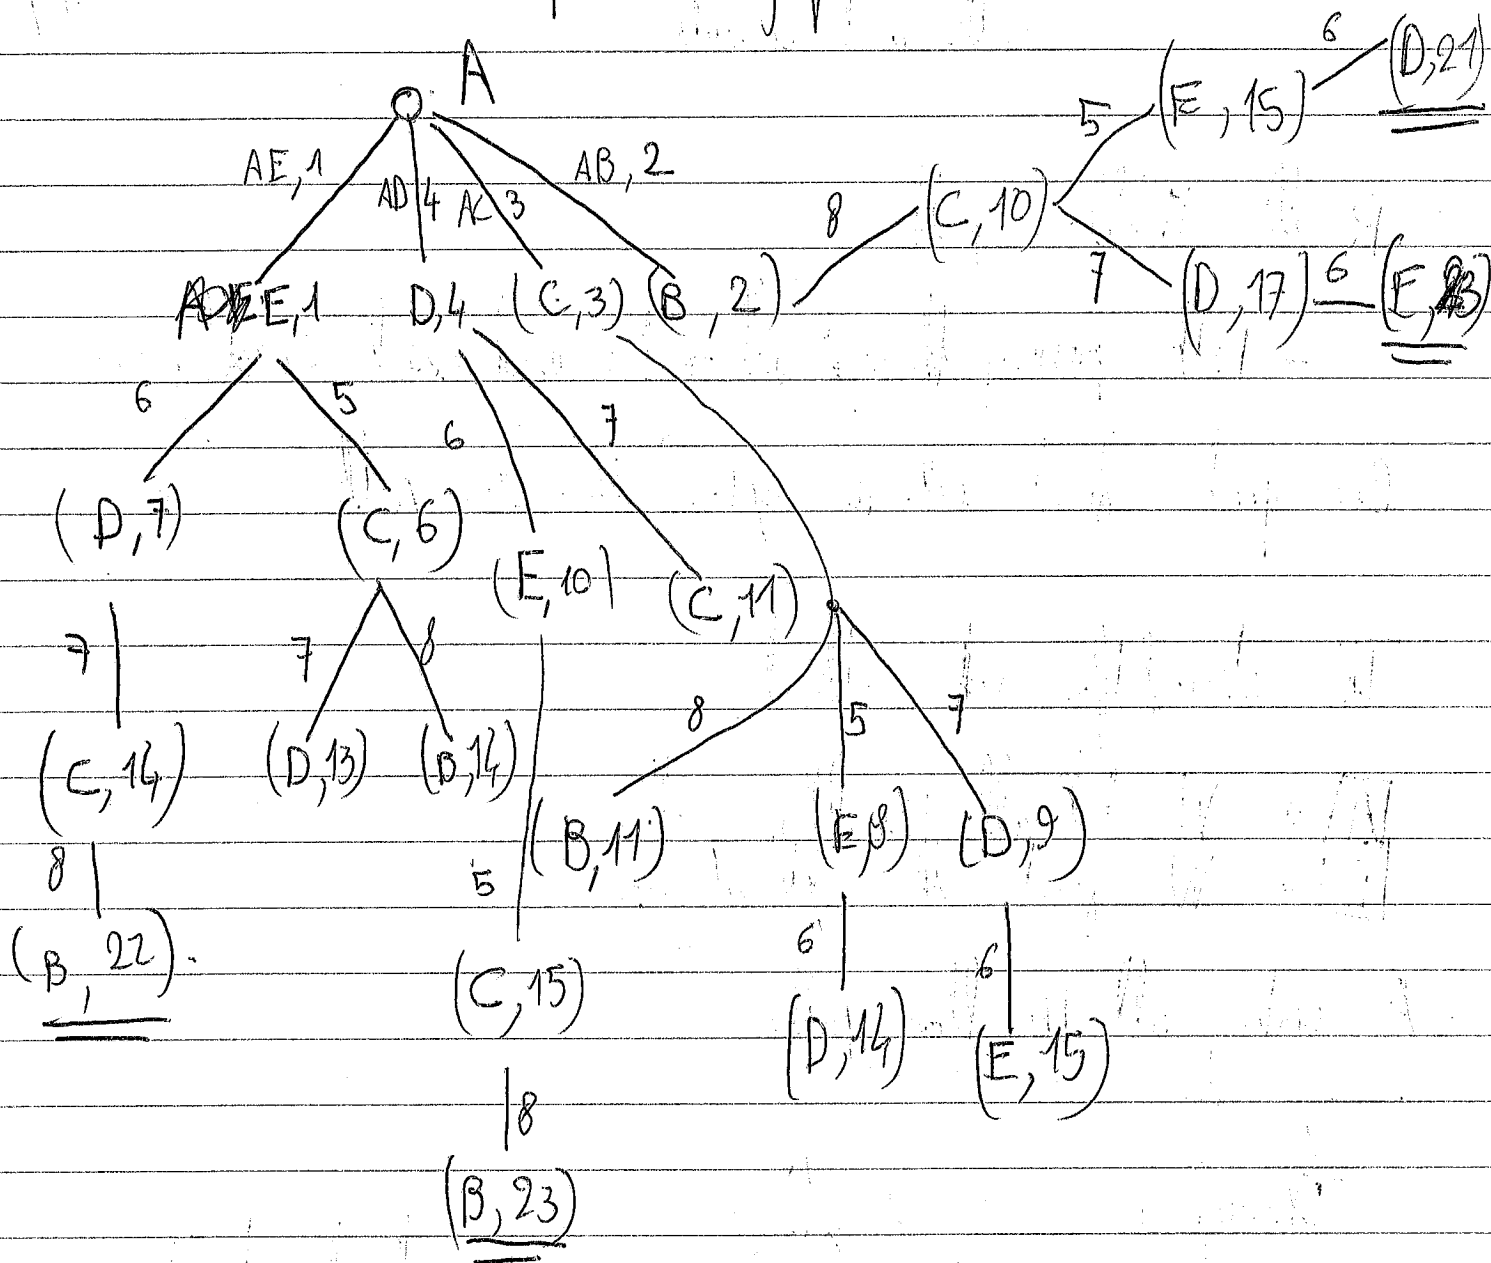 A
6
(D,21)
5
(E,15)
AE,1
AD 4
AC 3
AB,2
8
(C,10)
7
(D,17)
6
(E,23)
E,1
D,4
(C,3)
(B,2)
6
5
6
7
(D,7)
(C,6)
(E,10)
(C,11)
7
7
8
8
5
7
(C,14)
(D,13)
(B,14)
(B,11)
(E,8)
(D,9)
8
5
6
6
(B,22).
(C,15)
(D,14)
(E,15)
8
(B,23)